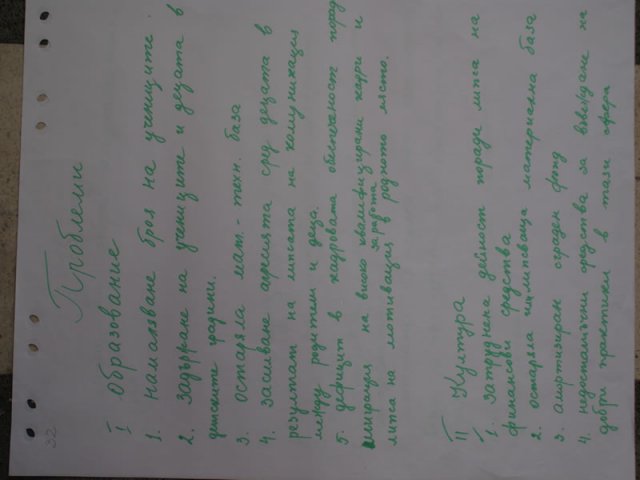 32
Проблеми
I Образование
1. намаляване броя на учениците
2. задържане на учениците и децата в
детските градини.
3. остаряла мат.-техн. база
4. засилване агресията сред децата в
резултат на липсата на комуникация
между родители и деца.
5. дефицит в кадровата обезпеченост порад
миграция на високо квалифицирани кадри и
липса на мотивация за работа в родното място.
II Култура
1. затруднена дейност поради липса на
финансови средства
2. остаряла и липсваща материална база
3. амортизиран сграден фонд
4. недостатъчни средства за въвеждане на
добри практики в тази сфера